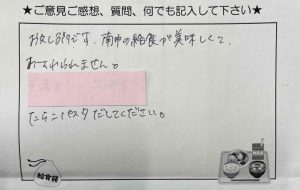 ★ご意見ご感想、質問、何でも記入して下さい★
お久しぶりです。南中の給食が美味しくて、
わすれられません。
たらこパスタだしてください。
給食袋